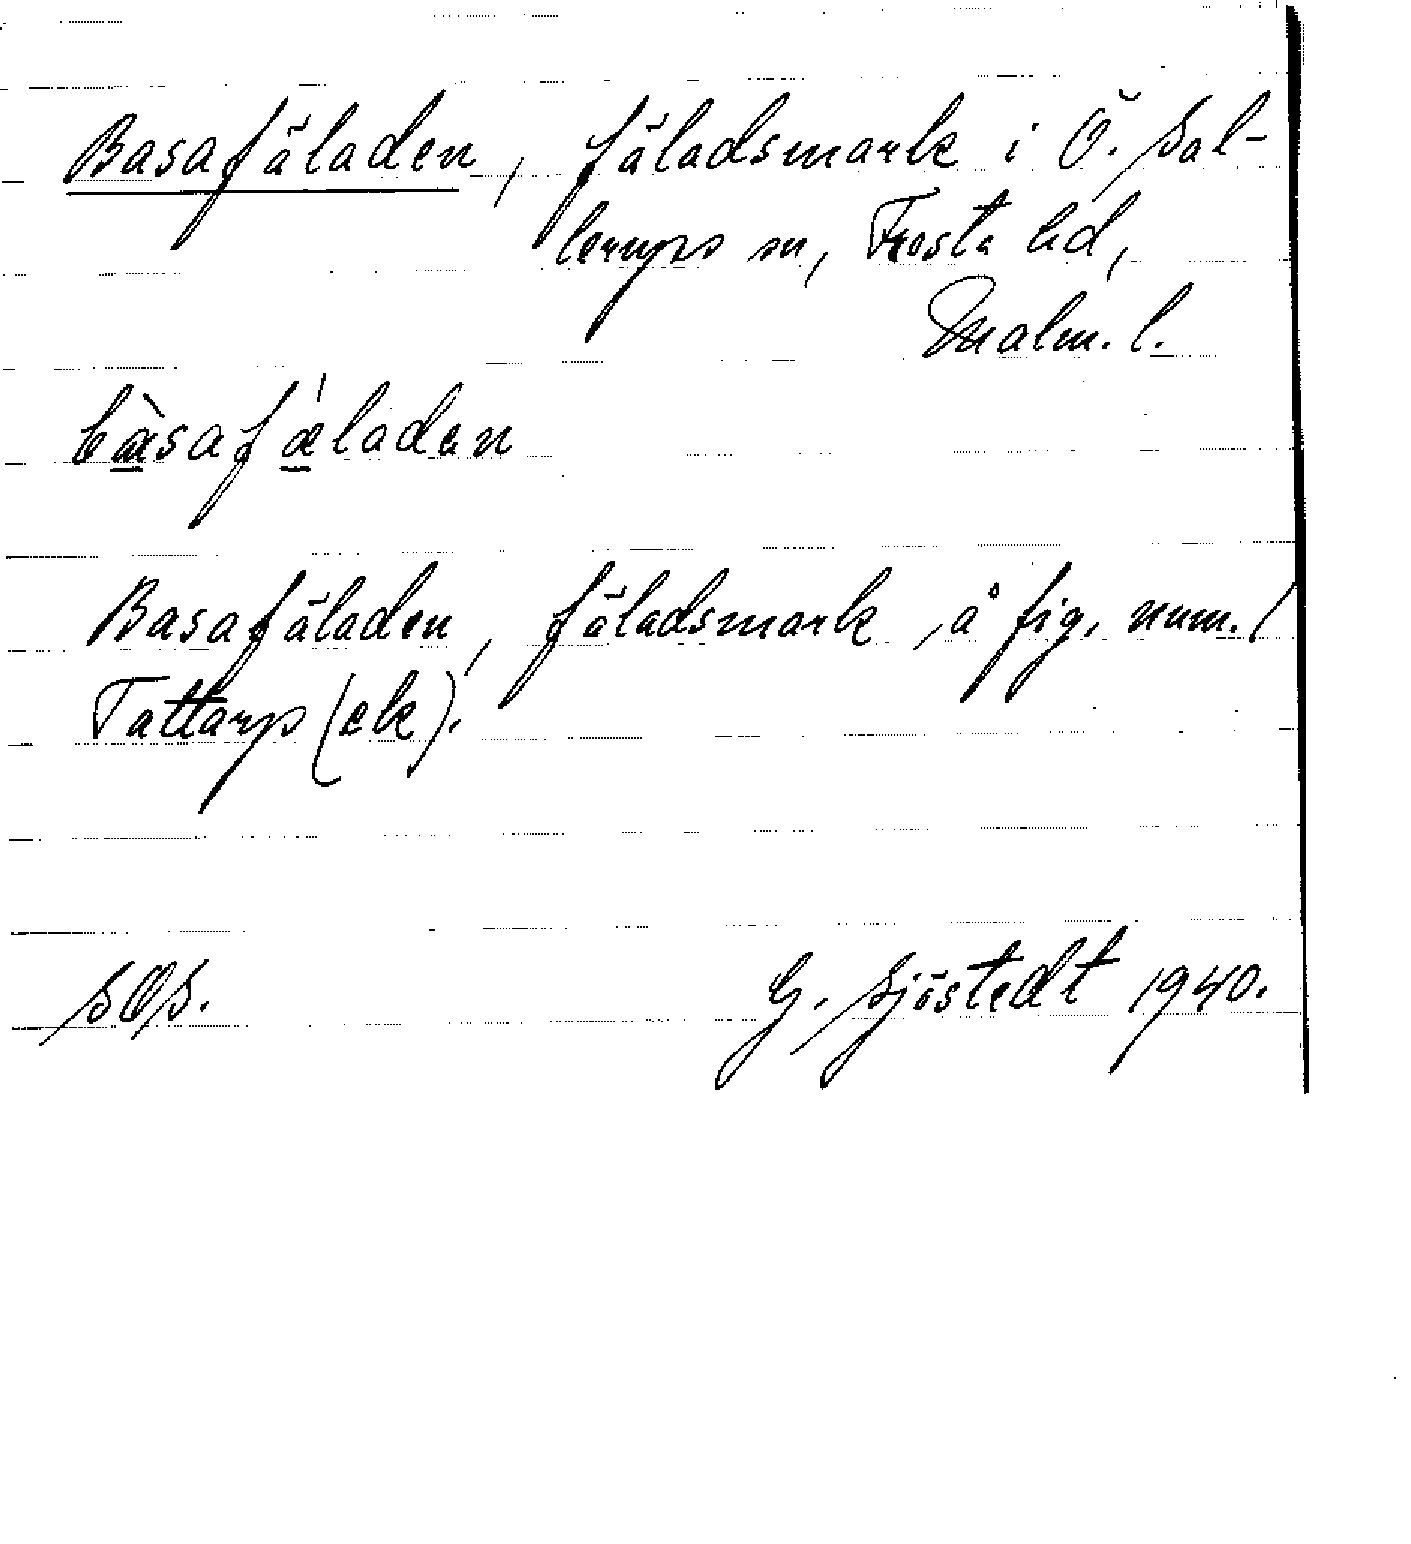 Basafäladen, fäladsmark i Ö. Sal-
lerups sn, Frosta hd,
Malm. l.
bæ̀safǽladen
Basafäladen, fäladsmark, å fig. num./
Tattarp (ek).
SOS.
G. Sjöstedt 1940.